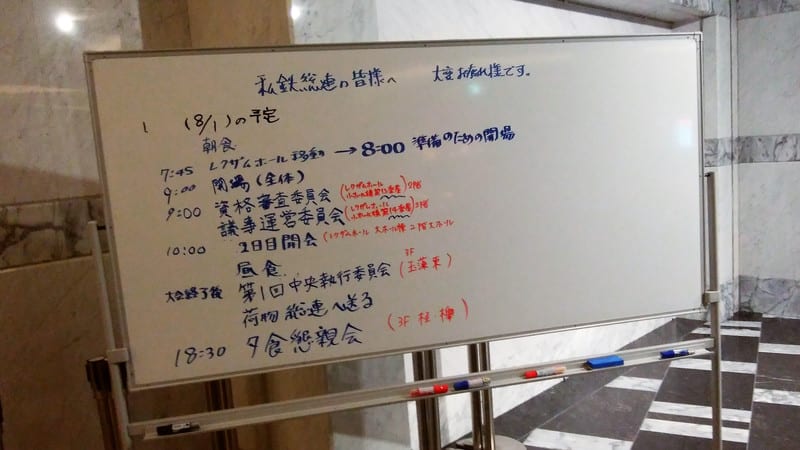 私鉄総連の皆様へ 大変お疲れ様です。
(8/1)の予定
朝食
7:45 レクザムホール移動 → 8:00 準備のための開場
9:00 開場(全体)
9:00 資格審査委員会 (レクザムホール 小ホール棟 5F 2階)
議事運営委員会 (レクザムホール 小ホール棟 2階)
10:00 2日目開会 (レクザムホール 大ホール棟 2階大ホール
昼食
大会終了後 第1回中央執行委員会 (3F 玉藻東)
荷物総連へ送る
18:30 夕食懇親会 (3F 桂・欅)